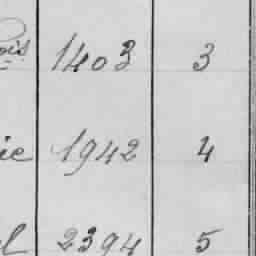 ois 1403 3
ie 1942 4
l 2394 5